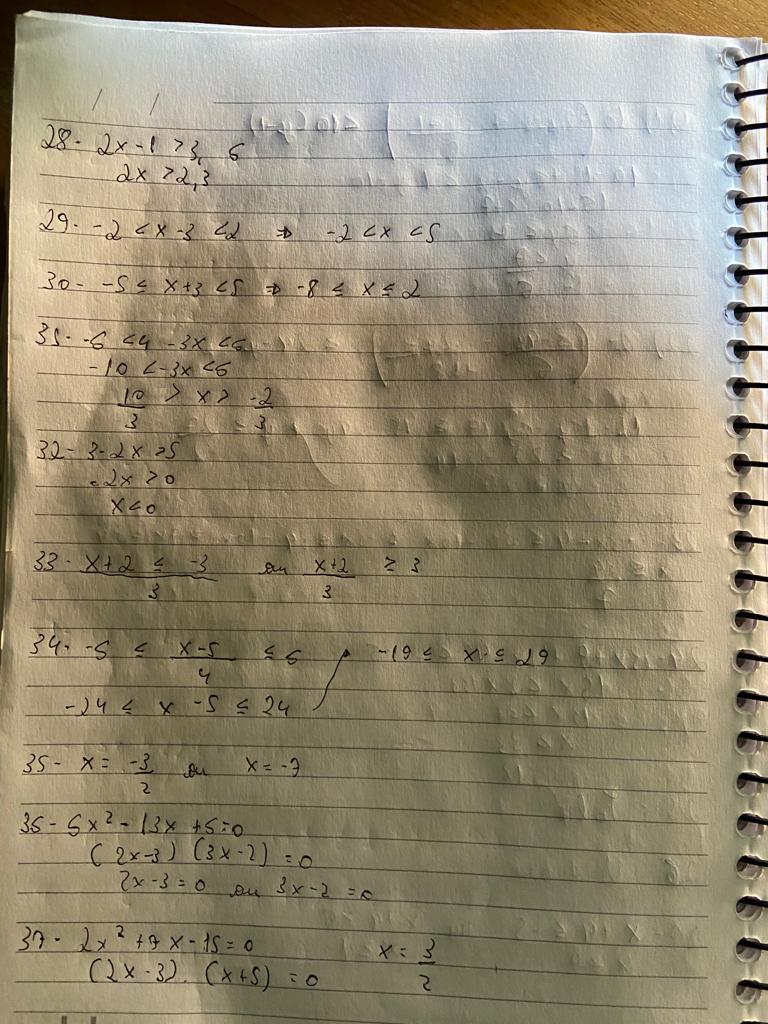 28- 2x-1 > 3, 6
2x > 2,3
29- -2 < x -3 < 2 ⇒ -2 < x < 5
30- -5 ≤ x+3 < 5 ⇒ -8 ≤ x ≤ 2
31- -6 < 4 -3x < 6
-10 < -3x < 6
10/3 > x > -2/3
32- 3-2x > 5
-2x > 0
x < 0
33- x+2 ≤ -3/3 ou x+2/3 ≥ 3
34- -6 ≤ x-5/4 ≤ 6 -19 ≤ x ≤ 29
-24 ≤ x -5 ≤ 24
35- x = -3/2 ou x = -7
36- 6x² - 13x + 6 = 0
(2x-3) (3x-2) = 0
2x-3 = 0 ou 3x-2 = 0
37- 2x² + 7x - 15 = 0 x = 3/2
(2x-3). (x+5) = 0